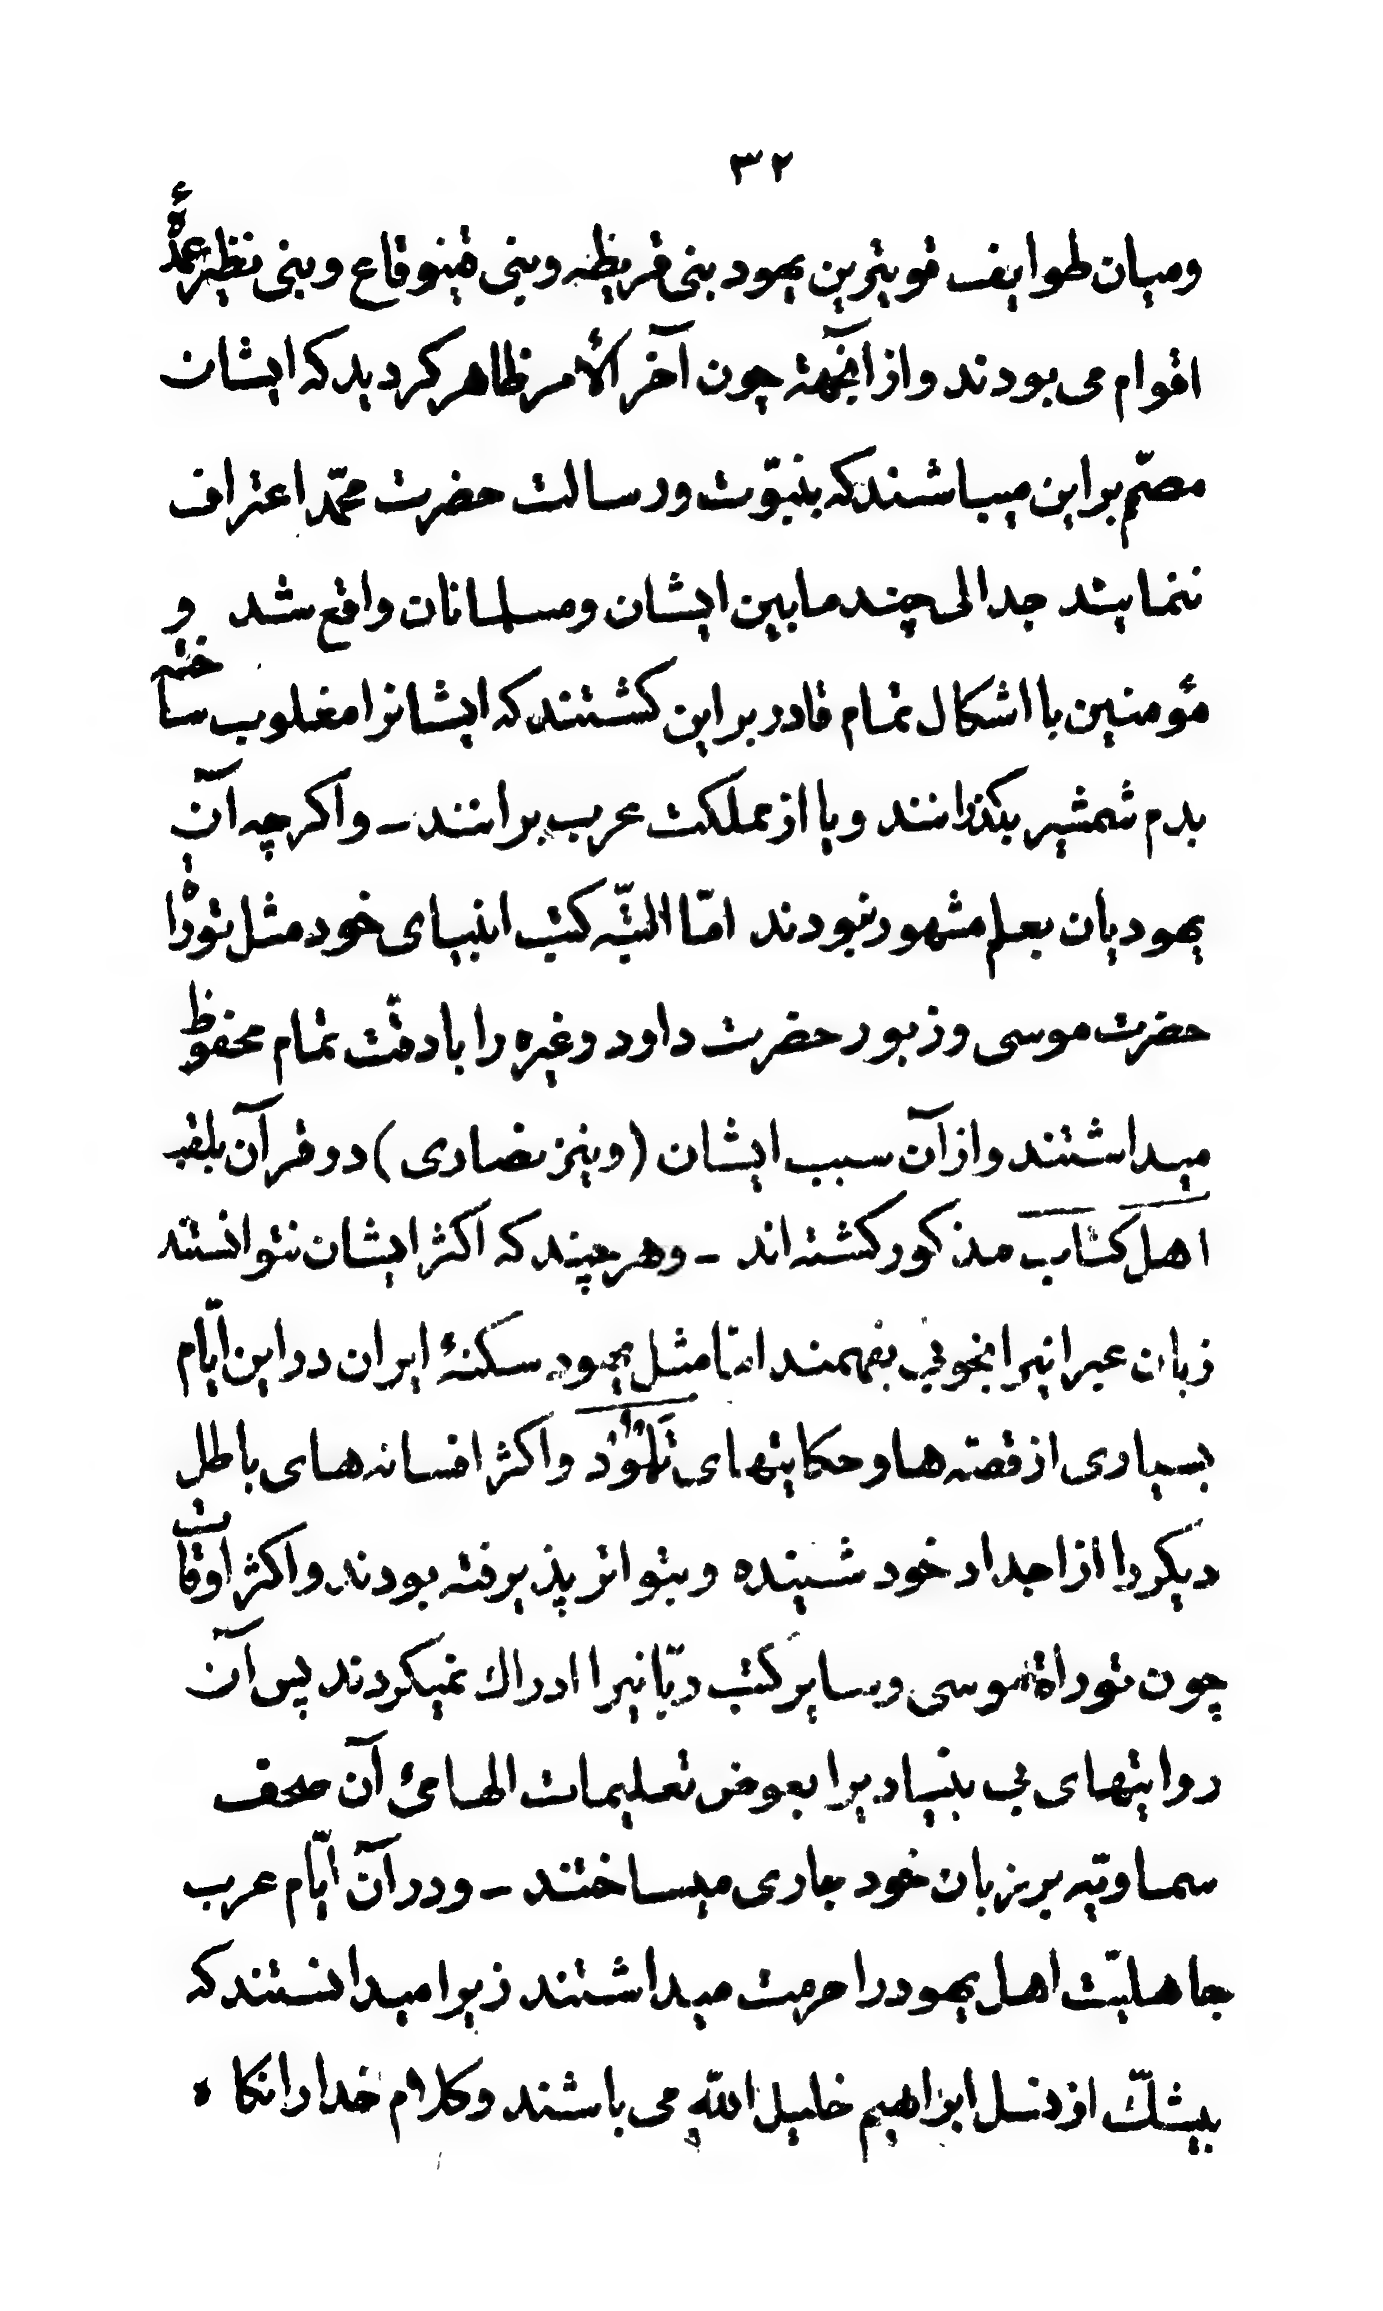 ٣٢
ومیان طوایف قویترین یهود بنی قریظه وبنی قینوقاع وبنی نظیر عمدۀ
اقوام می بودند واز آنجهة چون آخر الأمر ظاهر کردید که ایشان
مصمّم بر این میباشند که بنبوّت ورسالت حضرت محمّد اعتراف
ننمایند جدالی چند مابین ایشان ومسلمانان واقع شد و
مؤمنین با اشکال تمام قادر بر این کشتند که ایشانرا مغلوب ساخته
بدم شمشیر بکذرانند ویا از مملکت عرب برانند – واکرچه آن
یهودیان بعلم مشهور نبودند امّا البتّه کتب انبیای خود مثل توراة
حضرت موسی وزبور حضرت داود وغیره را با دقّت تمام محفوظ
میداشتند واز آن سبب ایشان (ونیز نصاری) در قرآن بلقب
اهل کتاب مذکور کشته اند – وهر چند که اکثر ایشان نتوانستند
زبان عبرانیرا بخوبی بفهمند امّا مثل یهود سکنۀ ایران در این ایّام
بسیاری از قصّه ها وحکایتهای تَلمُود واکثر افسانه های باطل
دیکر را از اجداد خود شنیده وبتواتر پذیرفته بودند واکثر اوقات
چون توراة موسی وسایر کتب ربّانیرا ادراك نمیکردند پس آن
روایتهای بی بنیادیرا بعوض تعلیمات الهامئ آن صحف
سماویّه بر زبان خود جاری میساختند – ودر آن ایّام عرب
جاهلیّت اهل یهود را حرمت میداشتند زیرا میدانستند که
بیشكّ از نسل ابراهیم خلیل اللّه می باشند وکلام خدا را نکاه